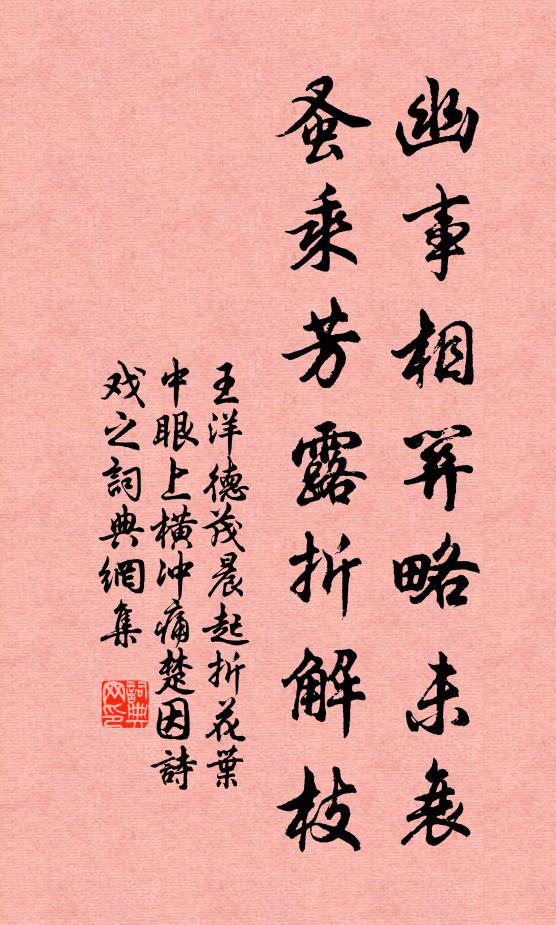 幽事相關略未衰
蚤乘芳露折解枝
王洋德茂晨起折花葉
中眼上橫冲痛楚因詩
戏之詞典網集
詞典网印